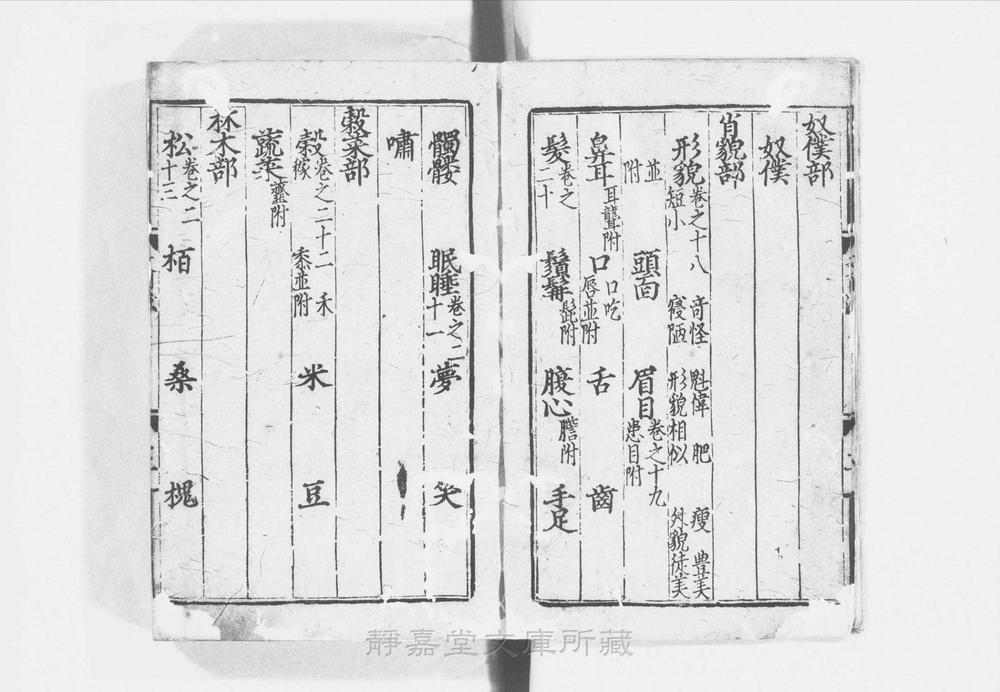 奴僕部
奴僕
肖貌部
形貌 卷之十八 奇怪 魁偉 肥 瘦 豊美
短小 寢陋 形貌相似 外貌徒美
並附 頭面 眉目 卷之十九 患目附
鼻耳 耳聾附 口 口吃 唇並附 舌 齒
髮 卷之二十 鬚髯 髭附 腹心 膽附 手足
髑髏 眠睡 卷之二十一 夢 笑
嘯
穀菜部
穀 卷之二十二 禾稼 黍並附 米 豆
蔬菜 虀附
林木部
松 卷之二十三 栢 桑 槐
靜嘉堂文庫所藏